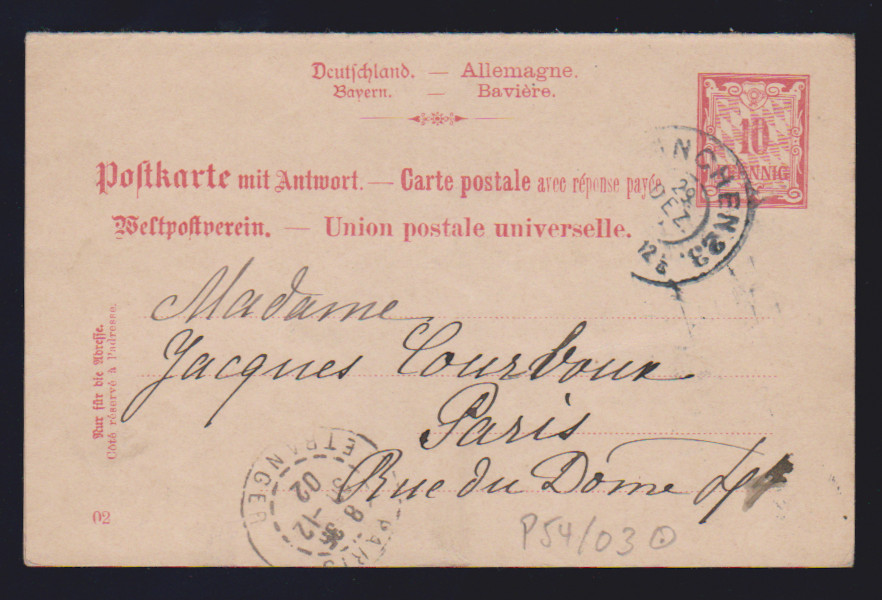 Deutschland. — Allemagne.
Bayern. — Bavière.
10
PFENNIG
Postkarte mit Antwort. — Carte postale avec réponse payée
Weltpostverein. — Union postale universelle.
NCHEN 23.
DEZ
12
Nur für die Adresse.
Côté réservé à l'adresse.
Madame
Jacques Courvoux
Paris
Rue du Dôme
ETRANGER
PARIS
-12
02
02
P54/03